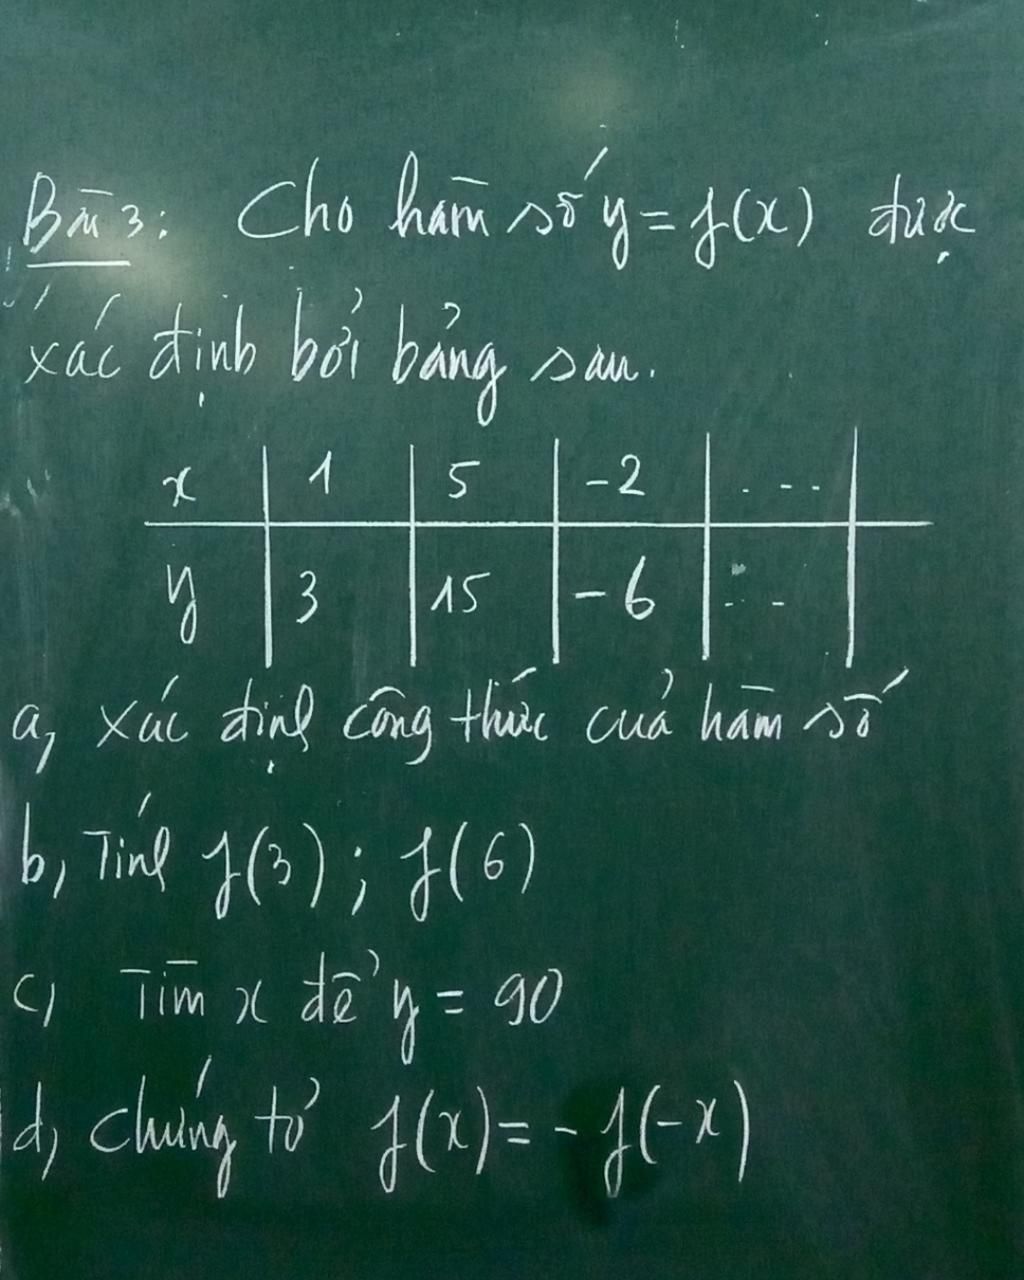 Bài 3: Cho hàm số y = f(x) được
xác định bởi bảng sau.
x 1 5 -2 ...
y 3 15 -6 ...
a, xác định công thức của hàm số
b, Tính f(3); f(6)
c, Tìm x để y = 90
d, chứng tỏ f(x) = -f(-x)